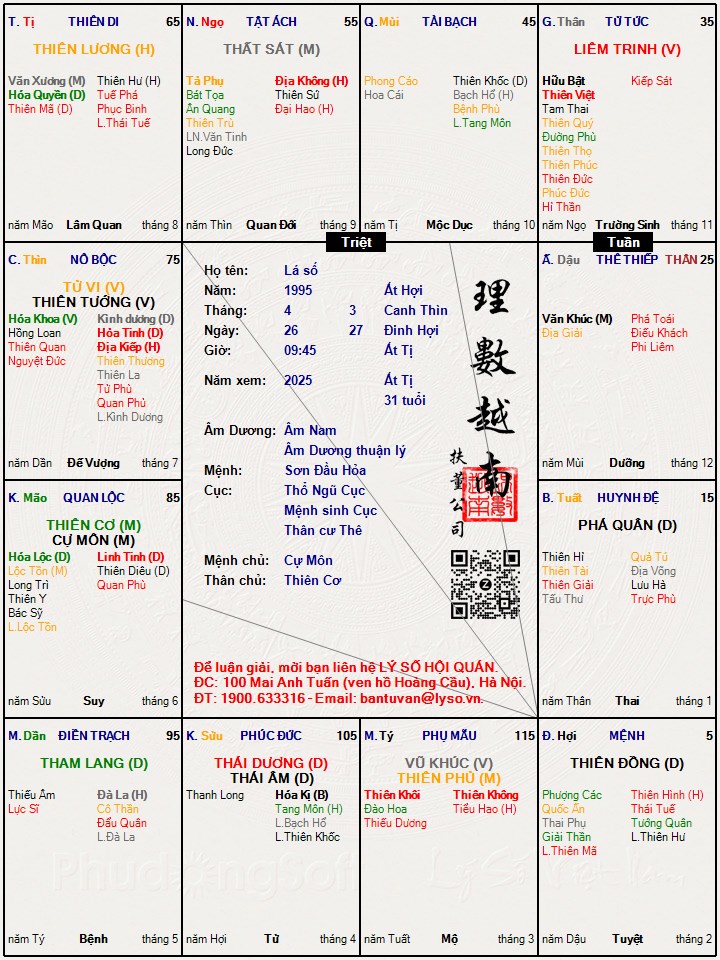 T. Tị THIÊN DI 65
THIÊN LƯƠNG (H)
Văn Xương (M) Thiên Hư (H)
Hóa Quyền (D) Tuế Phá
Thiên Mã (D) Phục Binh
L.Thái Tuế
năm Mão Lâm Quan tháng 8
N. Ngọ TẬT ÁCH 55
THẤT SÁT (M)
Tả Phụ Địa Không (H)
Bát Tọa Thiên Sứ
Ân Quang Đại Hao (H)
Thiên Trù
LN.Văn Tinh
Long Đức
năm Thìn Quan Đới tháng 9
Q. Mùi TÀI BẠCH 45
Phong Cáo Thiên Khốc (D)
Hoa Cái Bạch Hổ (H)
Bệnh Phù
L.Tang Môn
năm Tị Mộc Dục tháng 10
G. Thân TỬ TỨC 35
LIÊM TRINH (V)
Hữu Bật Kiếp Sát
Thiên Việt
Tam Thai
Thiên Quý
Đường Phù
Thiên Thọ
Thiên Phúc
Thiên Đức
Phúc Đức
Hỉ Thần
năm Ngọ Trường Sinh tháng 11
Triệt
Tuần
C. Thìn NÔ BỘC 75
TỬ VI (V)
THIÊN TƯỚNG (V)
Hóa Khoa (V) Kình dương (D)
Hồng Loan Hỏa Tinh (D)
Thiên Quan Địa Kiếp (H)
Nguyệt Đức Thiên Thương
Thiên La
Tử Phù
Quan Phủ
L.Kình Dương
năm Dần Đế Vượng tháng 7
Họ tên: Lá số
Năm: 1995 Ất Hợi
Tháng: 4 3 Canh Thìn
Ngày: 26 27 Đinh Hợi
Giờ: 09:45 Ất Tị
Năm xem: 2025 Ất Tị
31 tuổi
Âm Dương: Âm Nam
Âm Dương thuận lý
Mệnh: Sơn Đầu Hỏa
Cục: Thổ Ngũ Cục
Mệnh sinh Cục
Thân cư Thê
Mệnh chủ: Cự Môn
Thân chủ: Thiên Cơ
理數越南
扶董公司
Để luận giải, mời bạn liên hệ LÝ SỐ HỘI QUÁN.
ĐC: 100 Mai Anh Tuấn (ven hồ Hoàng Cầu), Hà Nội.
ĐT: 1900.633316 - Email: bantuvan@lyso.vn.
Ấ. Dậu THÊ THIẾP THÂN 25
Văn Khúc (M) Phá Toái
Địa Giải Điếu Khách
Phi Liêm
năm Mùi Dưỡng tháng 12
K. Mão QUAN LỘC 85
THIÊN CƠ (M)
CỰ MÔN (M)
Hóa Lộc (D) Linh Tinh (D)
Lộc Tồn (M) Thiên Diêu (D)
Long Trì Quan Phù
Thiên Y
Bác Sỹ
L.Lộc Tồn
năm Sửu Suy tháng 6
B. Tuất HUYNH ĐỆ 15
PHÁ QUÂN (D)
Thiên Hỉ Quả Tú
Thiên Tài Địa Võng
Thiên Giải Lưu Hà
Tấu Thư Trực Phù
năm Thân Thai tháng 1
M. Dần ĐIỀN TRẠCH 95
THAM LANG (D)
Thiếu Âm Đà La (H)
Lực Sĩ Cô Thần
Đẩu Quân
L.Đà La
năm Tý Bệnh tháng 5
K. Sửu PHÚC ĐỨC 105
THÁI DƯƠNG (D)
THÁI ÂM (D)
Thanh Long Hóa Kị (B)
Tang Môn (H)
L.Bạch Hổ
L.Thiên Khốc
năm Hợi Tử tháng 4
M. Tý PHỤ MẪU 115
VŨ KHÚC (V)
THIÊN PHỦ (M)
Thiên Khôi Thiên Không
Đào Hoa Tiểu Hao (H)
Thiếu Dương
năm Tuất Mộ tháng 3
Đ. Hợi MỆNH 5
THIÊN ĐỒNG (D)
Phượng Các Thiên Hình (H)
Quốc Ấn Thái Tuế
Thai Phụ Tướng Quân
Giải Thần L.Thiên Hư
L.Thiên Mã
năm Dậu Tuyệt tháng 2